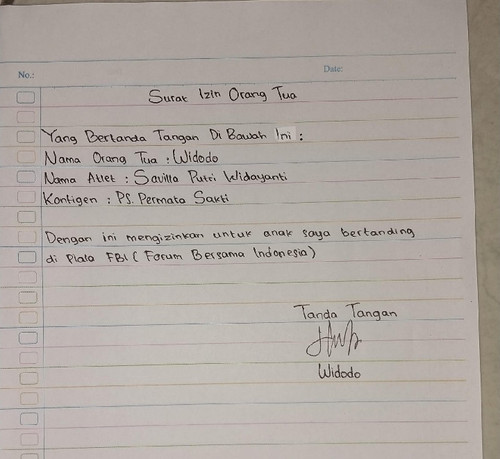 No.:
Date:
Surat Izin Orang Tua
Yang Bertanda Tangan Di Bawah Ini :
Nama Orang Tua : Widodo
Nama Atlet : Savilla Putri Widayanti
Kontigen : PS. Permata Sakti
Dengan ini mengizinkan untuk anak saya bertanding
di Piala FBI ( Forum Bersama Indonesia)
Tanda Tangan
Widodo